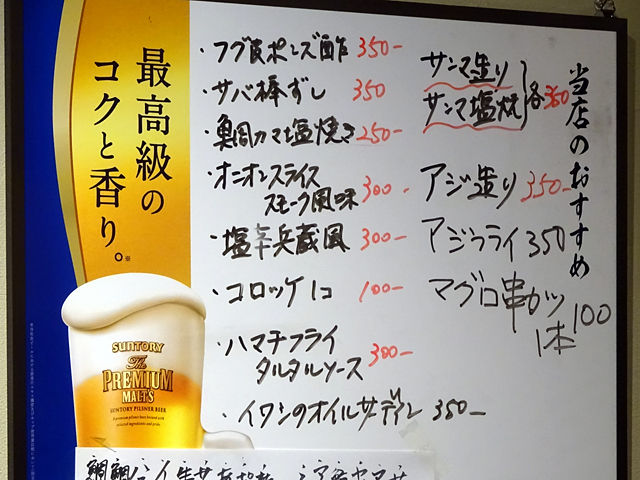 最高級の
コクと香り。※
SUNTORY
The
PREMIUM
MALT'S
SUNTORY PILSNER BEER
当店のおすすめ
・フグ皮ポンズ酢 350-
・サバ棒ずし 350
・真鯛カマ塩焼き 250-
・オニオンスライス
スモーク風味 300-
・塩辛兵蔵風 300-
・コロッケ1コ 100-
・ハマチフライ
タルタルソース 300-
・イワシのオイルサーディン 350-
サンマ造り
サンマ塩焼 各350
アジ造り 350-
アジフライ 350
マグロ串カツ
1本100